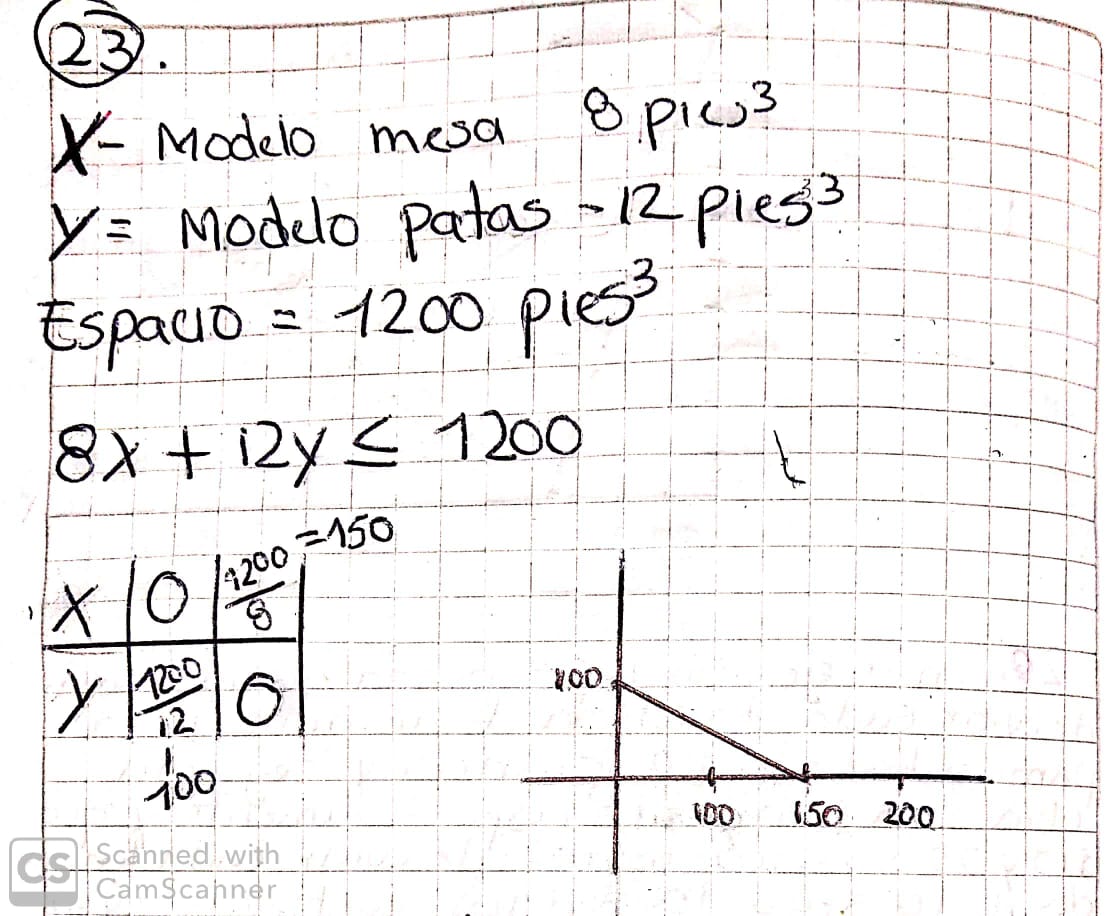 23.
X- Modelo mesa 8 pies³
Y= Modelo patas -12 pies³
Espacio = 1200 pies³
8x + 12y ≤ 1200
X | 0 | 1200/8 | =150
Y | 1200/12 | 0 |
100
100
100 150 200
CS Scanned with
CamScanner